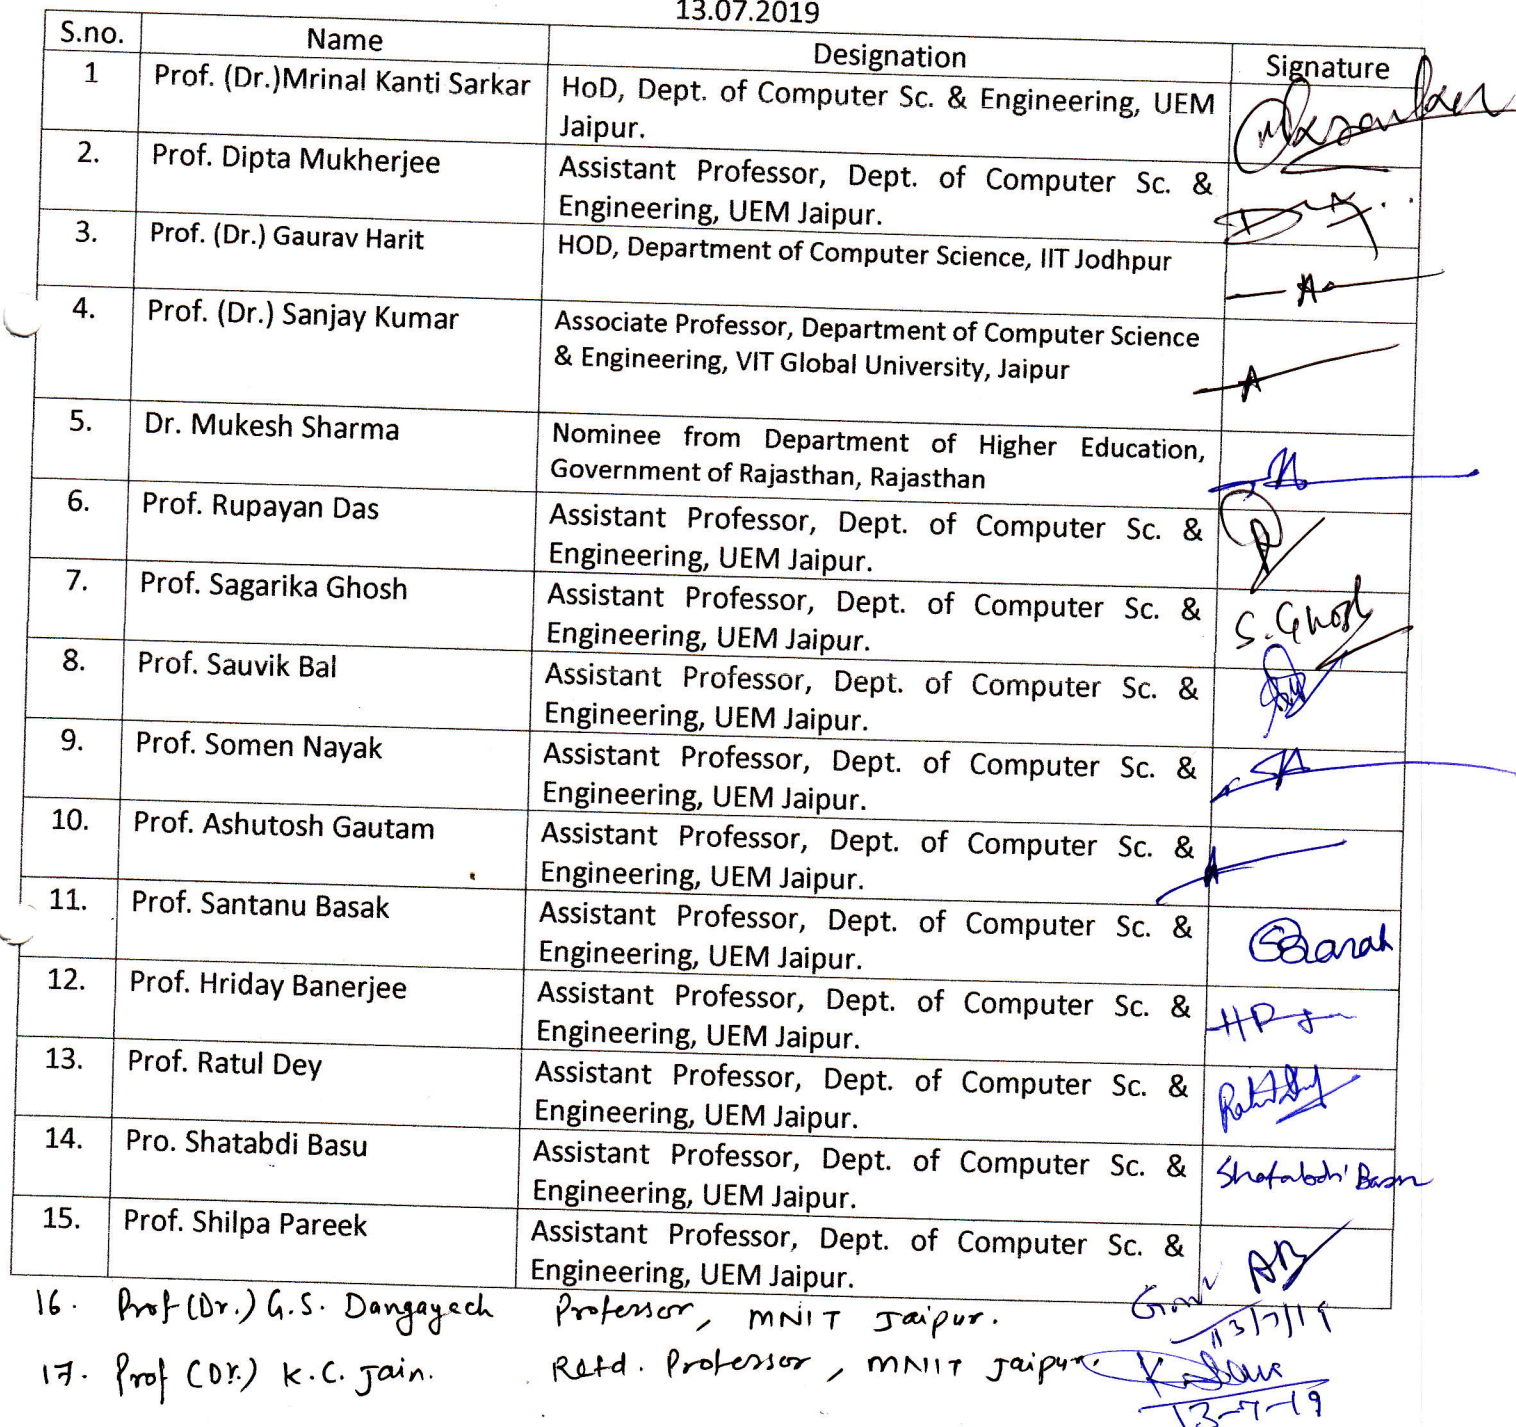 13.07.2019
S.no. Name Designation Signature
1 Prof. (Dr.)Mrinal Kanti Sarkar HoD, Dept. of Computer Sc. & Engineering, UEM
Jaipur.
2. Prof. Dipta Mukherjee Assistant Professor, Dept. of Computer Sc. &
Engineering, UEM Jaipur.
3. Prof. (Dr.) Gaurav Harit HOD, Department of Computer Science, IIT Jodhpur
4. Prof. (Dr.) Sanjay Kumar Associate Professor, Department of Computer Science
& Engineering, VIT Global University, Jaipur
5. Dr. Mukesh Sharma Nominee from Department of Higher Education,
Government of Rajasthan, Rajasthan
6. Prof. Rupayan Das Assistant Professor, Dept. of Computer Sc. &
Engineering, UEM Jaipur.
7. Prof. Sagarika Ghosh Assistant Professor, Dept. of Computer Sc. & S. Ghosh
Engineering, UEM Jaipur.
8. Prof. Sauvik Bal Assistant Professor, Dept. of Computer Sc. &
Engineering, UEM Jaipur.
9. Prof. Somen Nayak Assistant Professor, Dept. of Computer Sc. &
Engineering, UEM Jaipur.
10. Prof. Ashutosh Gautam Assistant Professor, Dept. of Computer Sc. &
Engineering, UEM Jaipur.
11. Prof. Santanu Basak Assistant Professor, Dept. of Computer Sc. &
Engineering, UEM Jaipur.
12. Prof. Hriday Banerjee Assistant Professor, Dept. of Computer Sc. &
Engineering, UEM Jaipur.
13. Prof. Ratul Dey Assistant Professor, Dept. of Computer Sc. &
Engineering, UEM Jaipur.
14. Pro. Shatabdi Basu Assistant Professor, Dept. of Computer Sc. & Shatabdi Basu
Engineering, UEM Jaipur.
15. Prof. Shilpa Pareek Assistant Professor, Dept. of Computer Sc. &
Engineering, UEM Jaipur.
16. Prof (Dr.) G.S. Dangayach Professor, MNIT Jaipur.
13/7/19
17. Prof (Dr.) K.C. Jain. Retd. Professor, MNIT Jaipur.
13-7-19